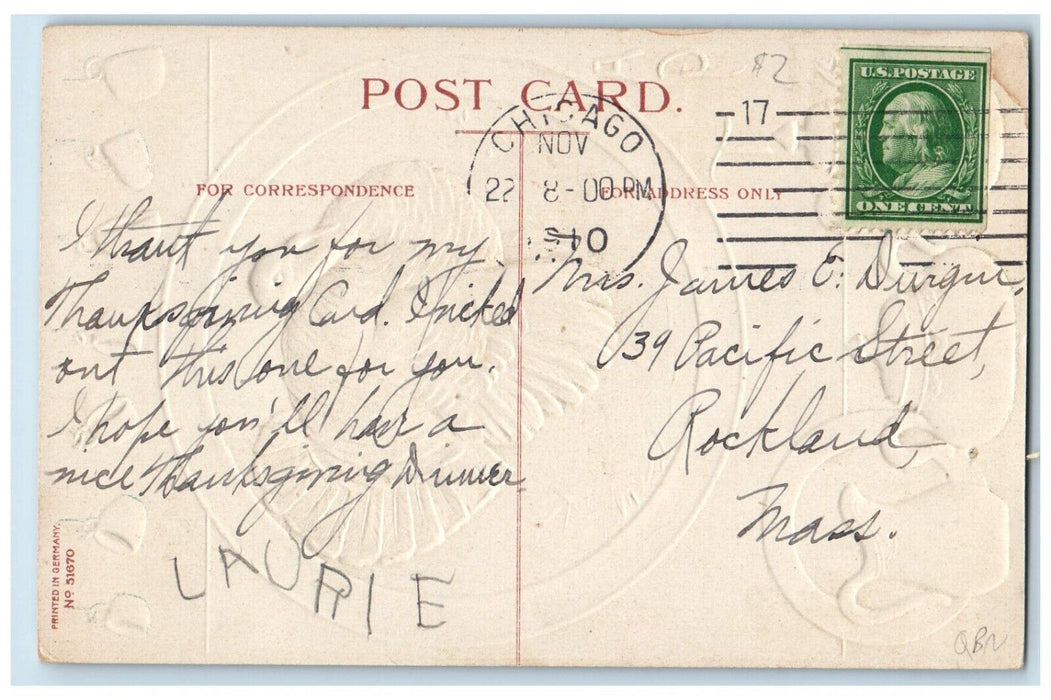 POST CARD.
$2
U.S. POSTAGE
ONE CENT
CHICAGO
NOV
22 8-00 PM
10
17
FOR CORRESPONDENCE
FOR ADDRESS ONLY
I thank you for my
Thanksgiving Card. I picked
out this one for you.
I hope you'll have a
nice Thanksgiving Dinner
LAURIE
Mrs. James E. Durgin,
39 Pacific Street,
Rockland,
Mass.
PRINTED IN GERMANY.
No 51670